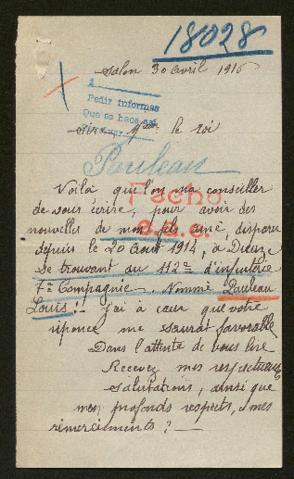 18028
Salon 30 avril 1916
A
Pedir informes
Que se hace así
Sire le roi
Pauleau
Voilà que l'on m'a conseiller
Fecho
de vous écrire, pour avoir des
nouvelles de mon fils ainé, disparu
depuis le 20 août 1914, à Dieuze
se trouvant au 112e d'infanterie
7e Compagnie. Nommé Pauleau
Louis!- j'ai à cœur que votre
réponce me saurat favorable
Dans l'attente de vous lire
Recevez mes respectueuses
salutations, ainsi que
mes profonds respects, & mes
remerciements? -